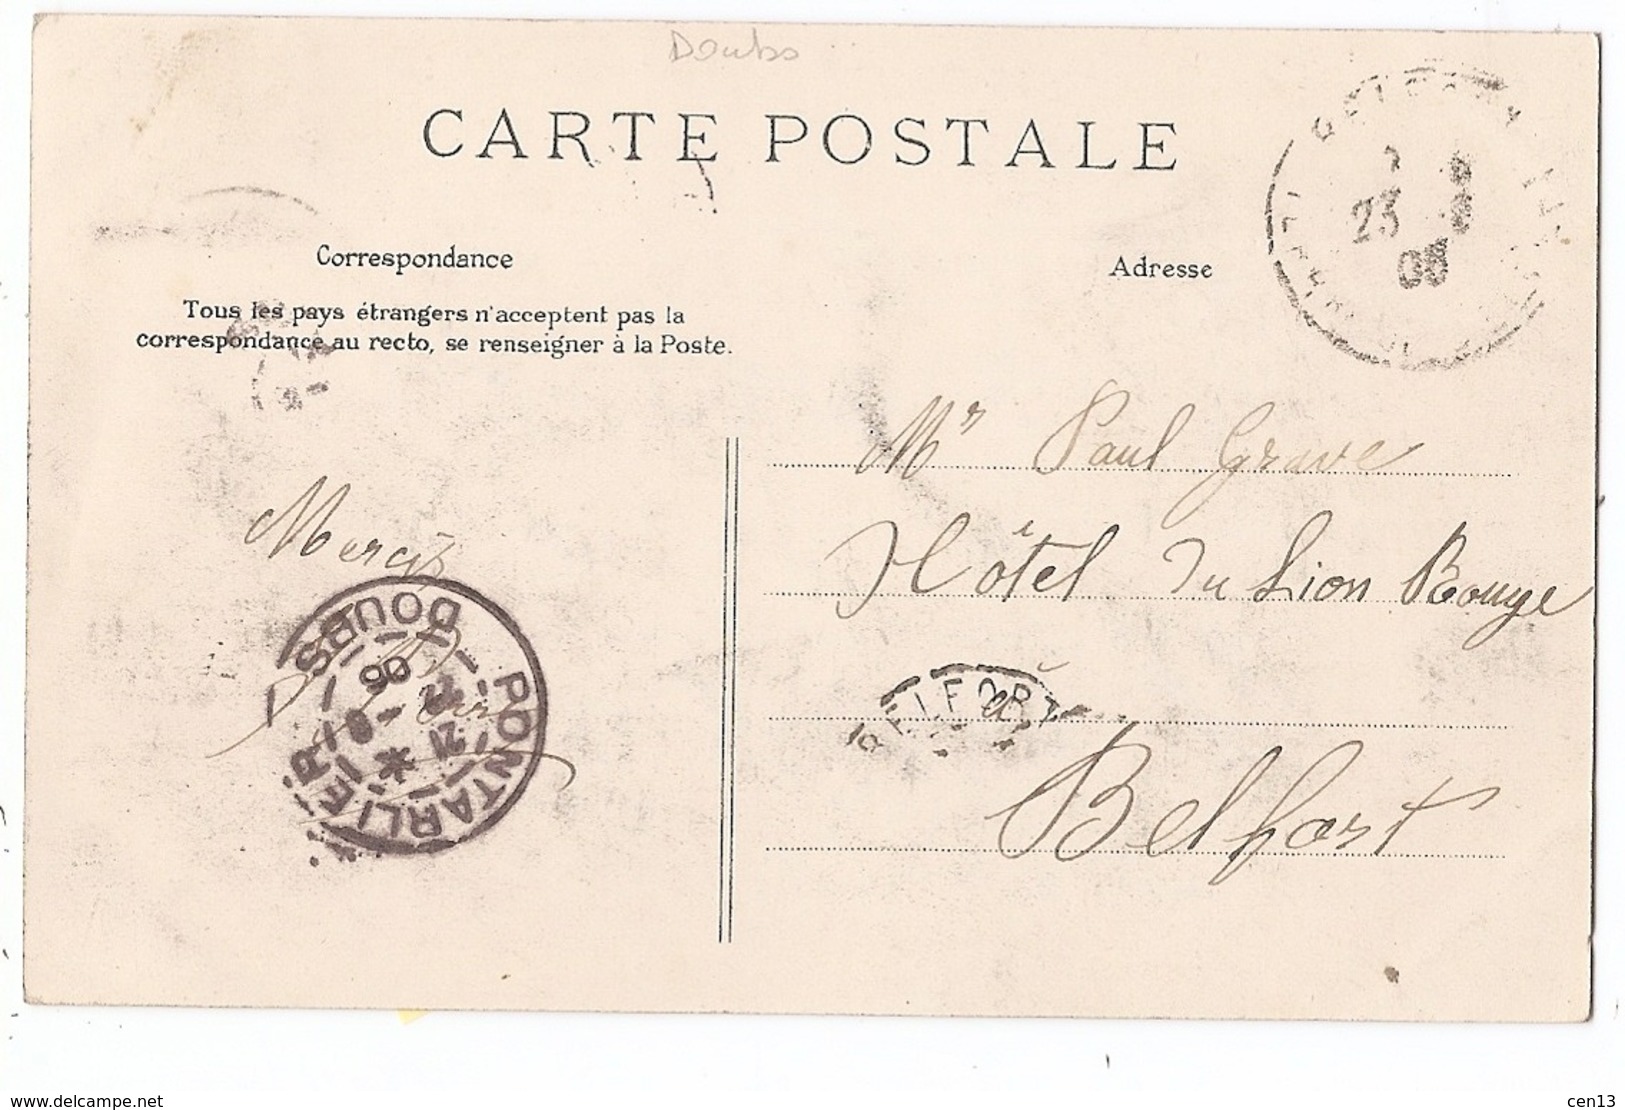 Doubs
CARTE POSTALE
Correspondance
Tous les pays étrangers n'acceptent pas la
correspondance au recto, se renseigner à la Poste.
Adresse
23
06
Mr Paul Grave
Hôtel du Lion Rouge
à
Belfort
BELFORT
Mercis
PONTARLIER
DOUBS
21 *
22 -8
06
www.delcampe.net
cen13